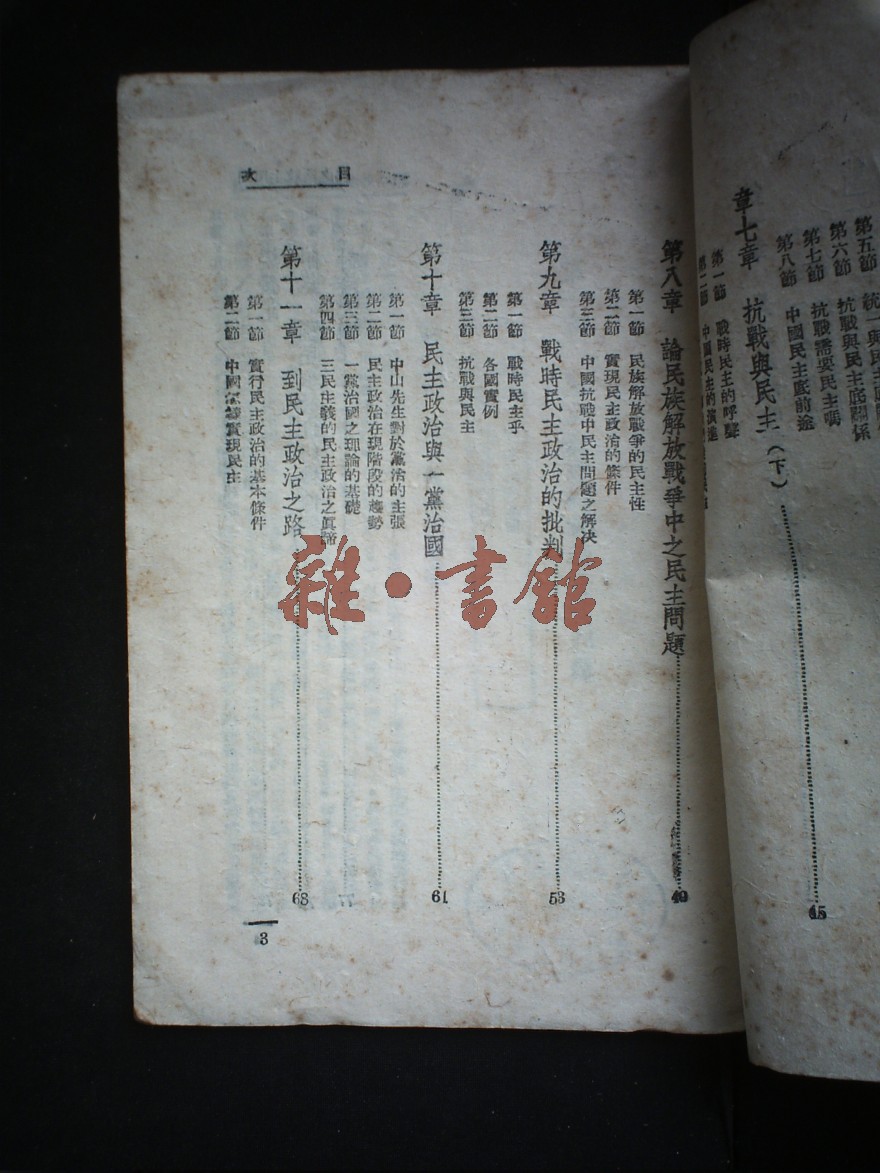 第五節
第六節 抗戰與民主底關係
第七節 抗戰需要民主嗎
第八節 中國民主底前途
章七章 抗戰與民主(下)
45
第一節 戰時民主的呼聲
第二節 中國民主的演進
目次
第八章 論民族解放戰爭中之民主問題
49
第一節 民族解放戰爭的民主性
第二節 實現民主政治的條件
第三節 中國抗戰中民主問題之解決
第九章 戰時民主政治的批判
53
第一節 戰時民主乎
第二節 各國實例
第三節 抗戰與民主
第十章 民主政治與一黨治國
61
第一節 中山先生對於黨治的主張
第二節 民主政治在現階段的趨勢
第三節 一黨治國之理論的基礎
第四節 三民主義的民主政治之眞諦
第十一章 到民主政治之路
68
第一節 實行民主政治的基本條件
第二節 中國怎樣實現民主
3
雜·書館